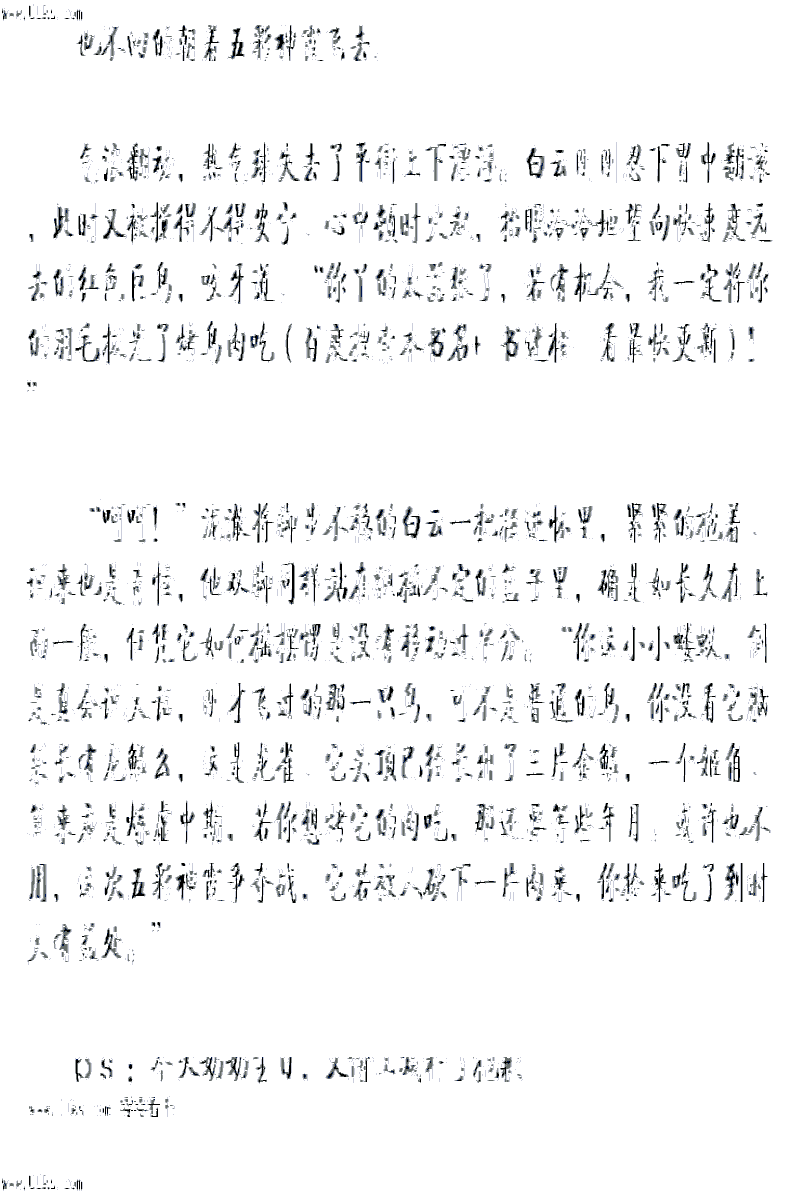 也不回的朝着五彩神霞飞去。
气浪翻动，热气球失去了平衡上下漂浮。白云刚刚忍下胃中翻滚
，此时又被搅得不得安宁，心中顿时火起，抬眼冷冷地望向快速度远
去的红色巨鸟，咬牙道，“你丫的太嚣张了，若有机会，我一定将你
的羽毛拔光了烤鸟肉吃（百度搜索本书名+ 书迷楼 看最快更新）！
”
“呵呵！”将脚步不稳的白云一把搂进怀里，紧紧的抱着，
说来也是奇怪，他双脚同样站在飘摇不定的篮子里，确是如长久在上
面一般，任凭它如何摇摆愣是没有移动过半分。“你这小小蝼蚁，倒
是真会说大话，刚才飞过的那一只鸟，可不是普通的鸟，你没看它脑
袋长有龙鳞么，这是龙雀，它头顶已经长出了三片金鳞，一个角，
算来应是炼虚中期，若你想烤它的肉吃，那还要等些年月，或许也不
用，这次五彩神霞争夺战，它若被人砍下一片肉来，你捡来吃了到时
大有益处。”
PS：